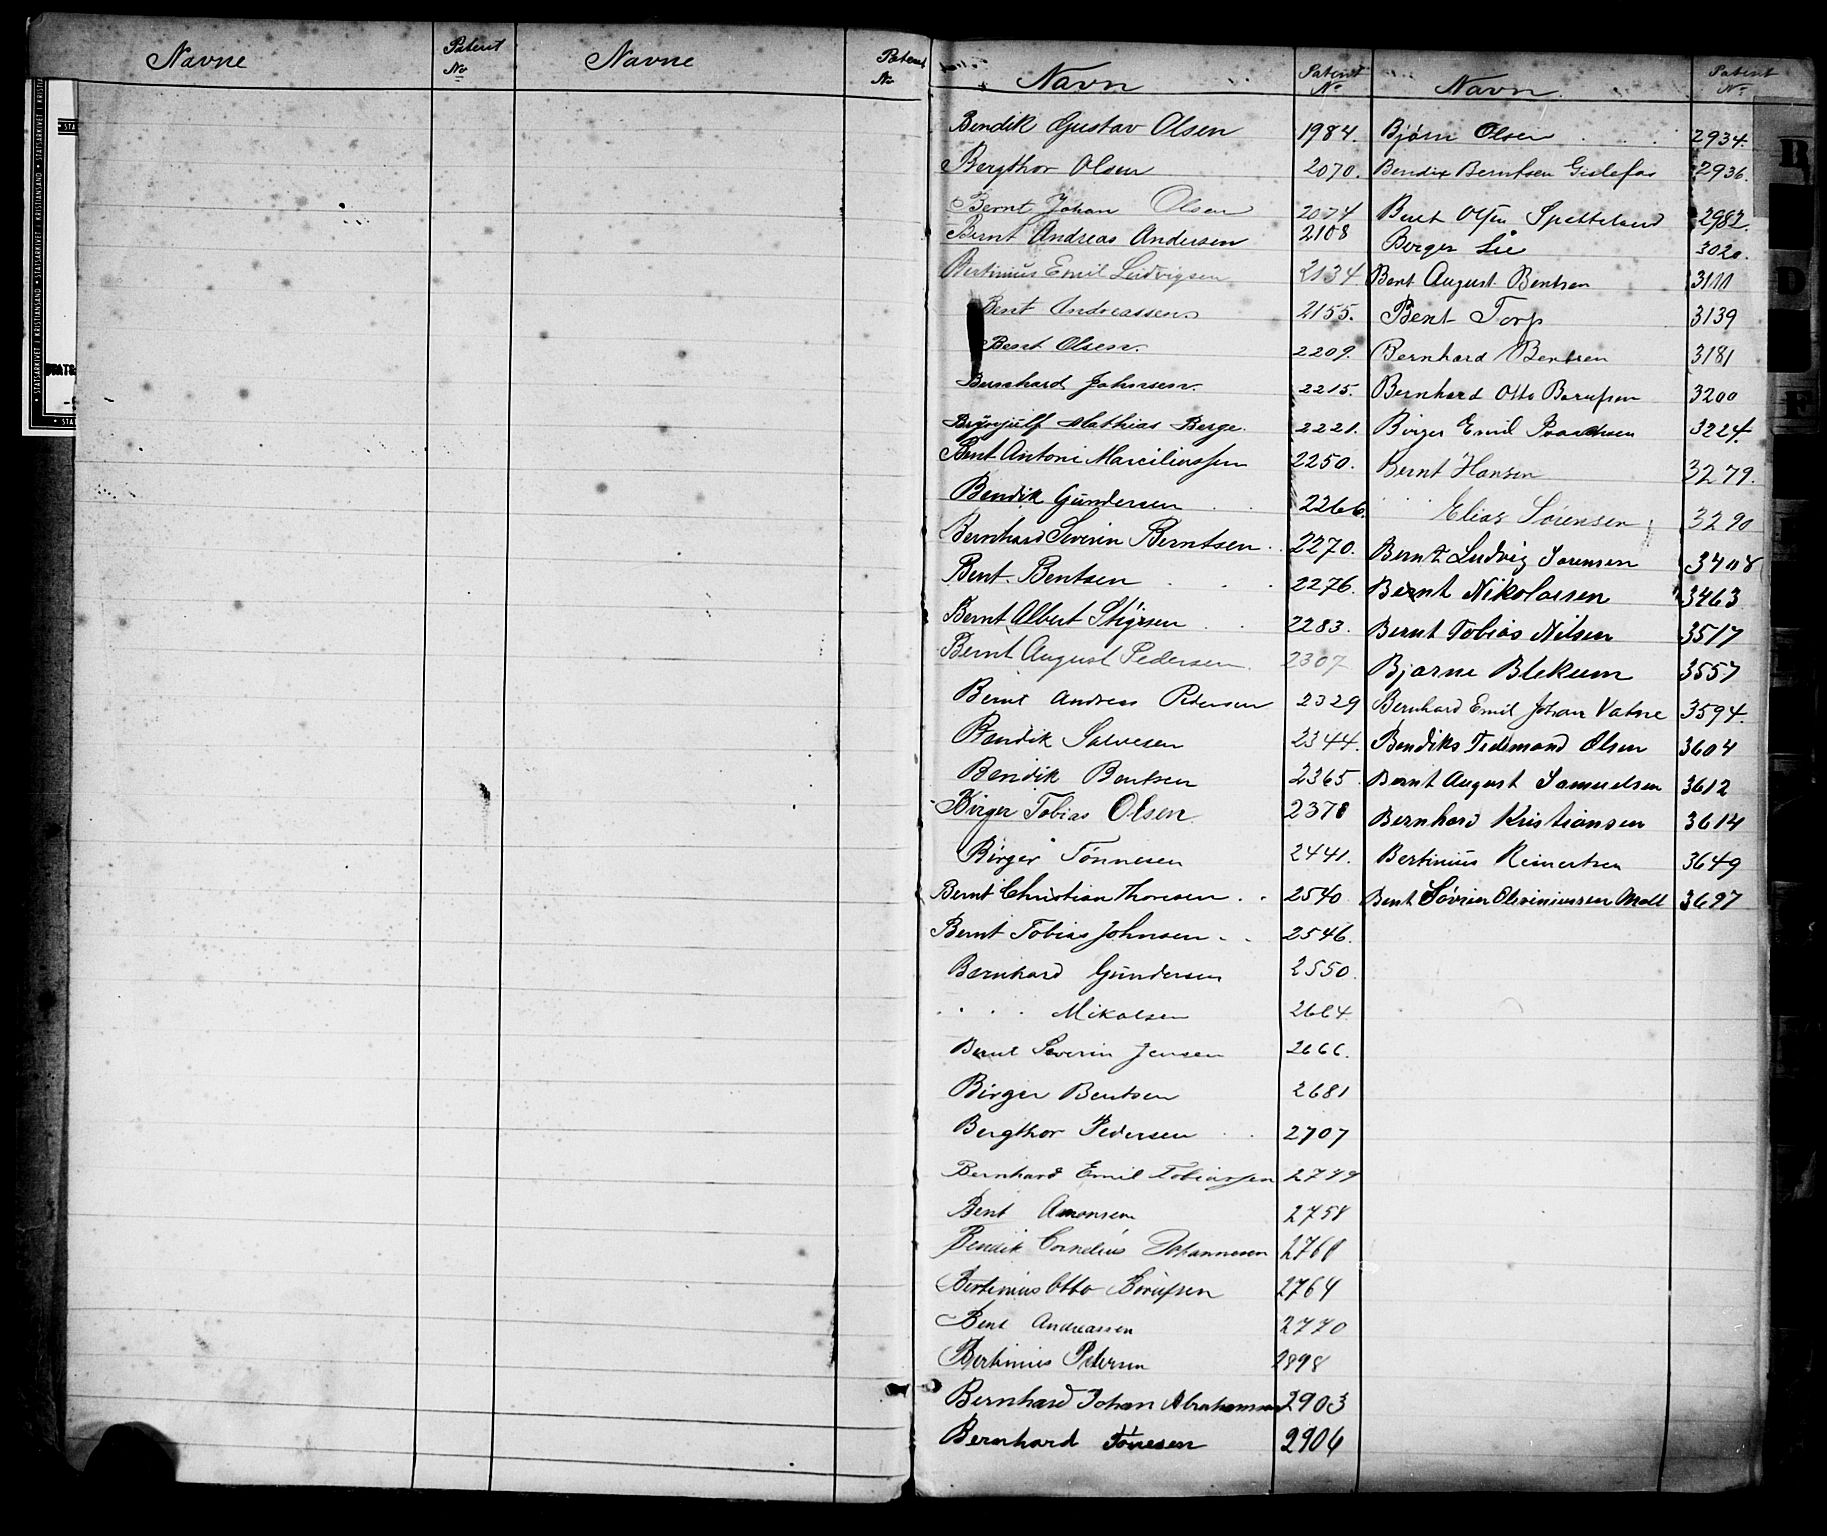 Navne
Patent No
Navne
Patent No
Navn
Patent No
Navn
Patent No
Bendik Gustav Olsen 1984.
Bergthor Olsen 2070.
Bernt Johan Olsen 2074
Bernt Andreas Andersen 2108
Bertinius Emil Ludvigsen 2134
Bent Andreassen 2155.
Bent Olsen. 2209.
Bernhard Johnsen. 2215.
Mathias Berge. 2221.
Bent Antoni Marciliussen 2250.
Bendik Gundersen 2266.
Bernhard Severin Berntsen 2270.
Bent Bentsen 2276.
Bernt Albert Stigsen 2283.
Bernt August Pedersen 2307
Bernt Andreas Petersen 2329
Bendik Salvesen 2344.
Bendik Bentsen 2365
Birger Tobias Olsen 2378
Birger Tønnesen 2441.
Bernt Christian Thoresen 2540
Bernt Tobias Johnsen 2546.
Bernhard Gundersen 2550.
" Mikalsen 2664
Bernt Severin Jensen 2666.
Birger Bentsen 2681
Bergthor Pedersen 2707
Bernhard Emil Tobiassen 2749
Bent Amonsen 2758
Bendik Cornelius Johannesen 2761
Bertinius Otto 2764
Bent Andreassen 2770
Bertinius Petersen 2898
Bernhard Johan Abrahamsen 2903
Bernhard Tønesen 2906
Bjørn Olsen 2934.
Bendix Berntsen Gislefos 2936.
Bent Olsen Spetteland 2982.
Borger Lie 3020.
Bent August Bentsen 3111
Bent Torp 3139
Bernhard Bentsen 3181
Bernhard Otto 3200
Birger Emil 3224.
Bernt Hansen 3279.
" Elias Sørensen 3290
Bernt Ludvig Sørensen 3408
Bernt Nikolaisen 3463
Bernt Tobias Nilsen 3517
Bjarne Blekum 3557
Bernhard Emil Johan Vatne 3594.
Bendiks Tidemand Olsen 3604
Bernt August Samuelsen 3612
Bernhard Kristiansen 3614
Bertinius Reinertsen 3649
Bent Søvrin Moll 3697
B
D
F
STATSARKIVET I KRISTIANSAND